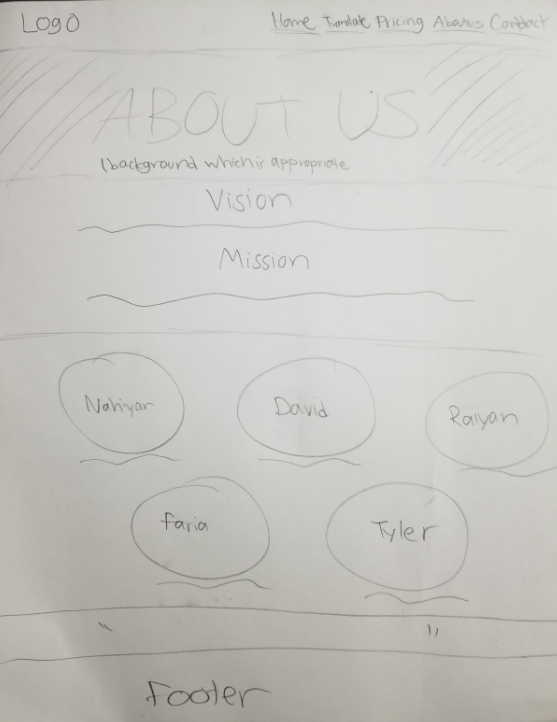 LOGO
Home Translate Pricing About us Contact
ABOUT US
(background which is appropriate
Vision
Mission
Nahiyan David Raiyan
Faria Tyler
Footer